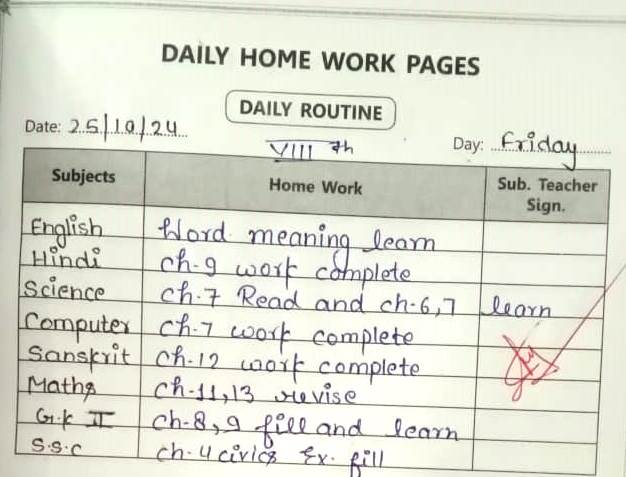 DAILY HOME WORK PAGES
DAILY ROUTINE
Date: 25/10/24
VIII th
Day: Friday
Subjects Home Work Sub. Teacher Sign.
English Word meaning learn
Hindi ch-9 work complete
Science ch-7 Read and ch-6,7 learn
Computer ch-7 work complete
Sanskrit ch-12 work complete
Maths ch-11,13 revise
G.k II ch-8,9 fill and learn
S.S.C ch-4 civics Ex. fill